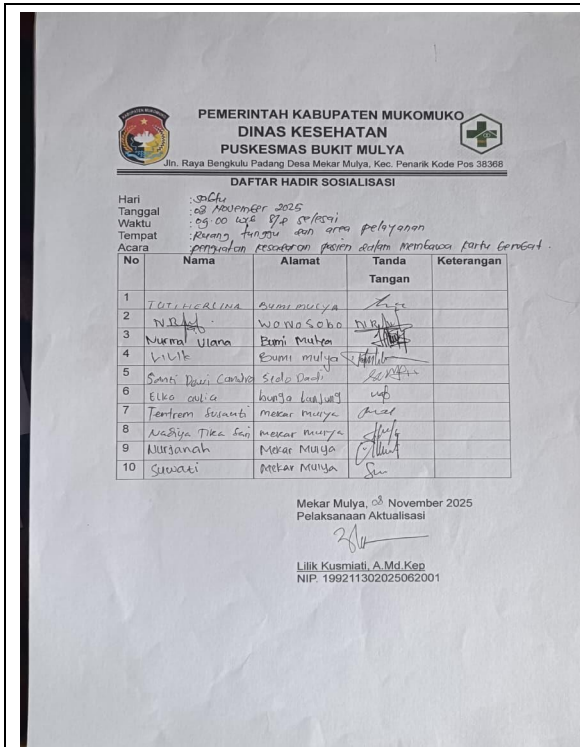 PEMERINTAH KABUPATEN MUKOMUKO
DINAS KESEHATAN
PUSKESMAS BUKIT MULYA
Jln. Raya Bengkulu Padang Desa Mekar Mulya, Kec. Penarik Kode Pos 38368
DAFTAR HADIR SOSIALISASI
Hari : Sabtu
Tanggal : 08 November 2025
Waktu : 09.00 wib s/d selesai
Tempat : Ruang tunggu dan area pelayanan
Acara : penguatan kesadaran pasien dalam membawa kartu berobat.
No Nama Alamat Tanda Tangan Keterangan
1 TUTI HERLINA Bumi mulya
2 WONOSOBO
3 Nurmal Viana Bumi Mulya
4 LILIK Bumi mulya
5 Santi Dewi Candra Sido Dadi
6 Elko aulia bunga tanjung
7 Tentrem Susanti mekar mulya
8 Nadiya Tika Sari mekar mulya
9 Nurjanah Mekar Mulya
10 Suwati Mekar Mulya
Mekar Mulya, 08 November 2025
Pelaksanaan Aktualisasi
Lilik Kusmiati, A.Md.Kep
NIP. 199211302025062001